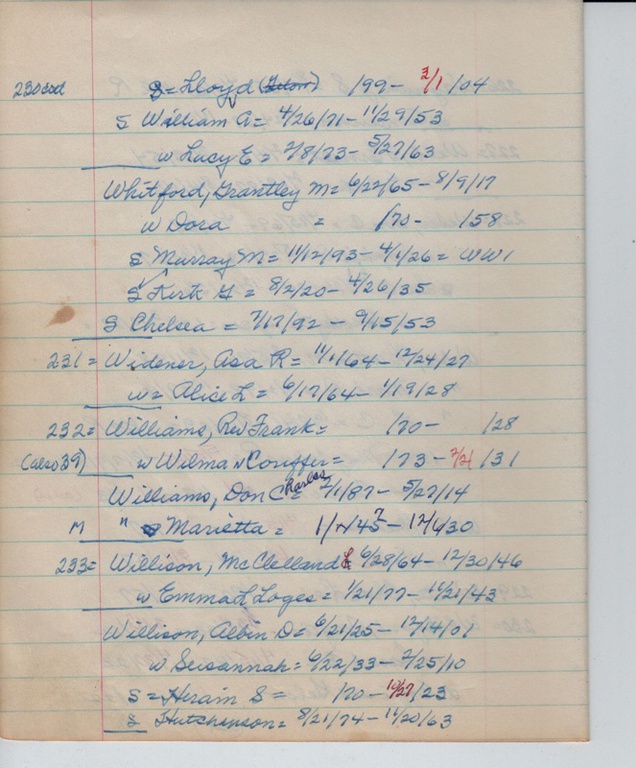 230 cont S=Lloyd (Below) /99- 3/1/04
S William A= 4/26/71-11/29/53
w Lucy E= 7/8/73- 5/27/63
Whitford, Grantley M=6/22/65-8/9/17
w Dora = /70- /58
S Murray M=11/12/93-4/1/26= WW1
S Kirk G= 8/2/20-4/26/35
S Chelsea = 7/17/92-9/15/53
231= Widener, Asa R= 11/1/64-12/24/27
w= Alice L= 6/17/64-1/19/28
232= Williams, Rev Frank= /70- /28
(also 39) w Wilma N Couffer= /73- 2/21/31
Williams, Don Charles= 2/1/87- 5/27/14
M " Marietta= 1/ /45?-12/6/30
233= Willison, McClelland K 6/28/64-12/30/46
w Emma L Loges= 1/21/77-11/21/43
Willison, Albin D=6/21/25-12/14/07
w Susannah=6/22/33-2/25/10
S=Hiram S= /70-10/27/23
S Hutchinson= 8/21/74-11/20/63